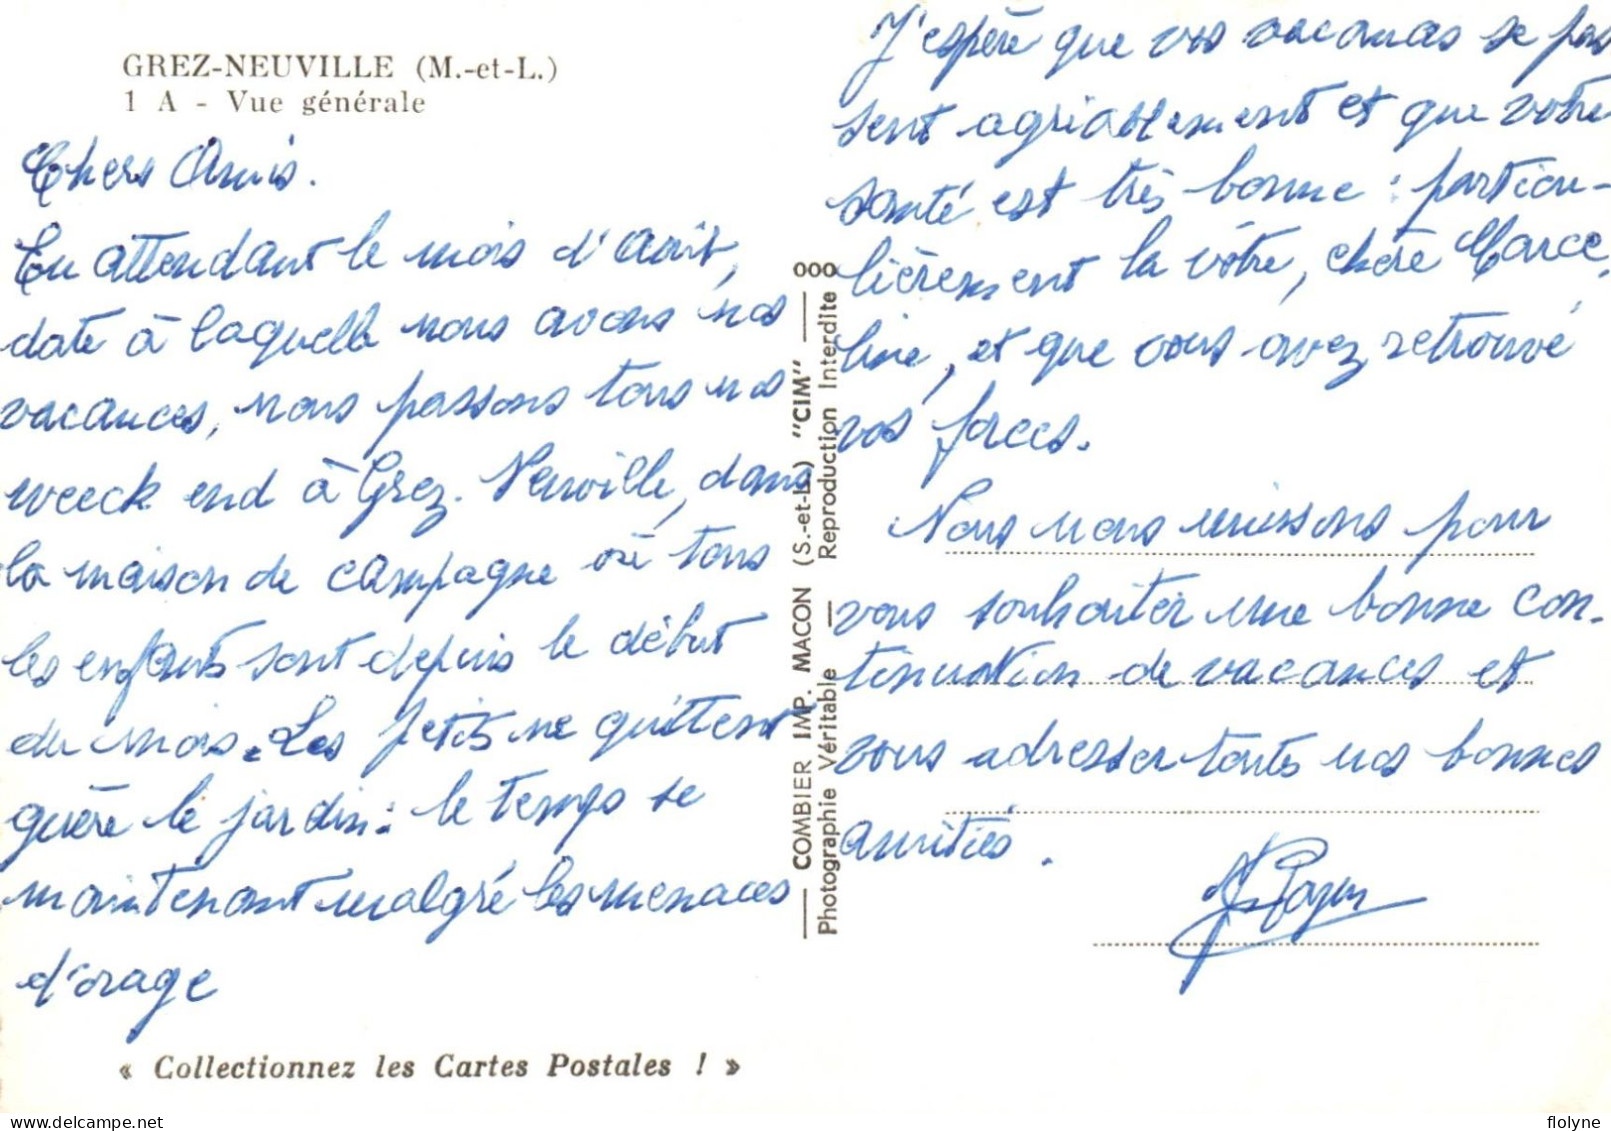 GREZ-NEUVILLE (M.-et-L.)
1 A - Vue générale
Chers Amis.
En attendant le mois d'août,
date à laquelle nous avons nos
vacances, nous passons tous nos
weeck end à Grez-Neuville, dans
la maison de campagne où tous
les enfants sont depuis le début
du mois. Les petits ne quittent
guère le jardin : le temps se
maintenant malgré les menaces
d'orage
« Collectionnez les Cartes Postales ! »
COMBIER IMP. MACON (S.-et-L.) "CIM" 000
Photographie Véritable — Reproduction Interdite
J'espère que vos vacances se pas
sent agréablement et que votre
santé est très bonne : particu-
lièrement la vôtre, chère Marce.
line, et que vous avez retrouvé
vos forces.
Nous nous unissons pour
vous souhaiter une bonne con-
tinuation de vacances et
vous adresser toutes nos bonnes
amitiés.
flolyne